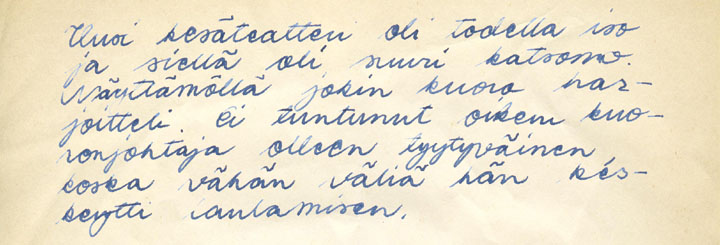 Uusi kesäteatteri oli todella iso
ja siellä oli suuri katsomo.
Näyttämöllä jokin kuoro har-
joitteli. Ei tuntunut oikein kuo-
ronjohtaja olleen tyytyväinen
koska vähän väliä hän kes-
keytti laulamisen.